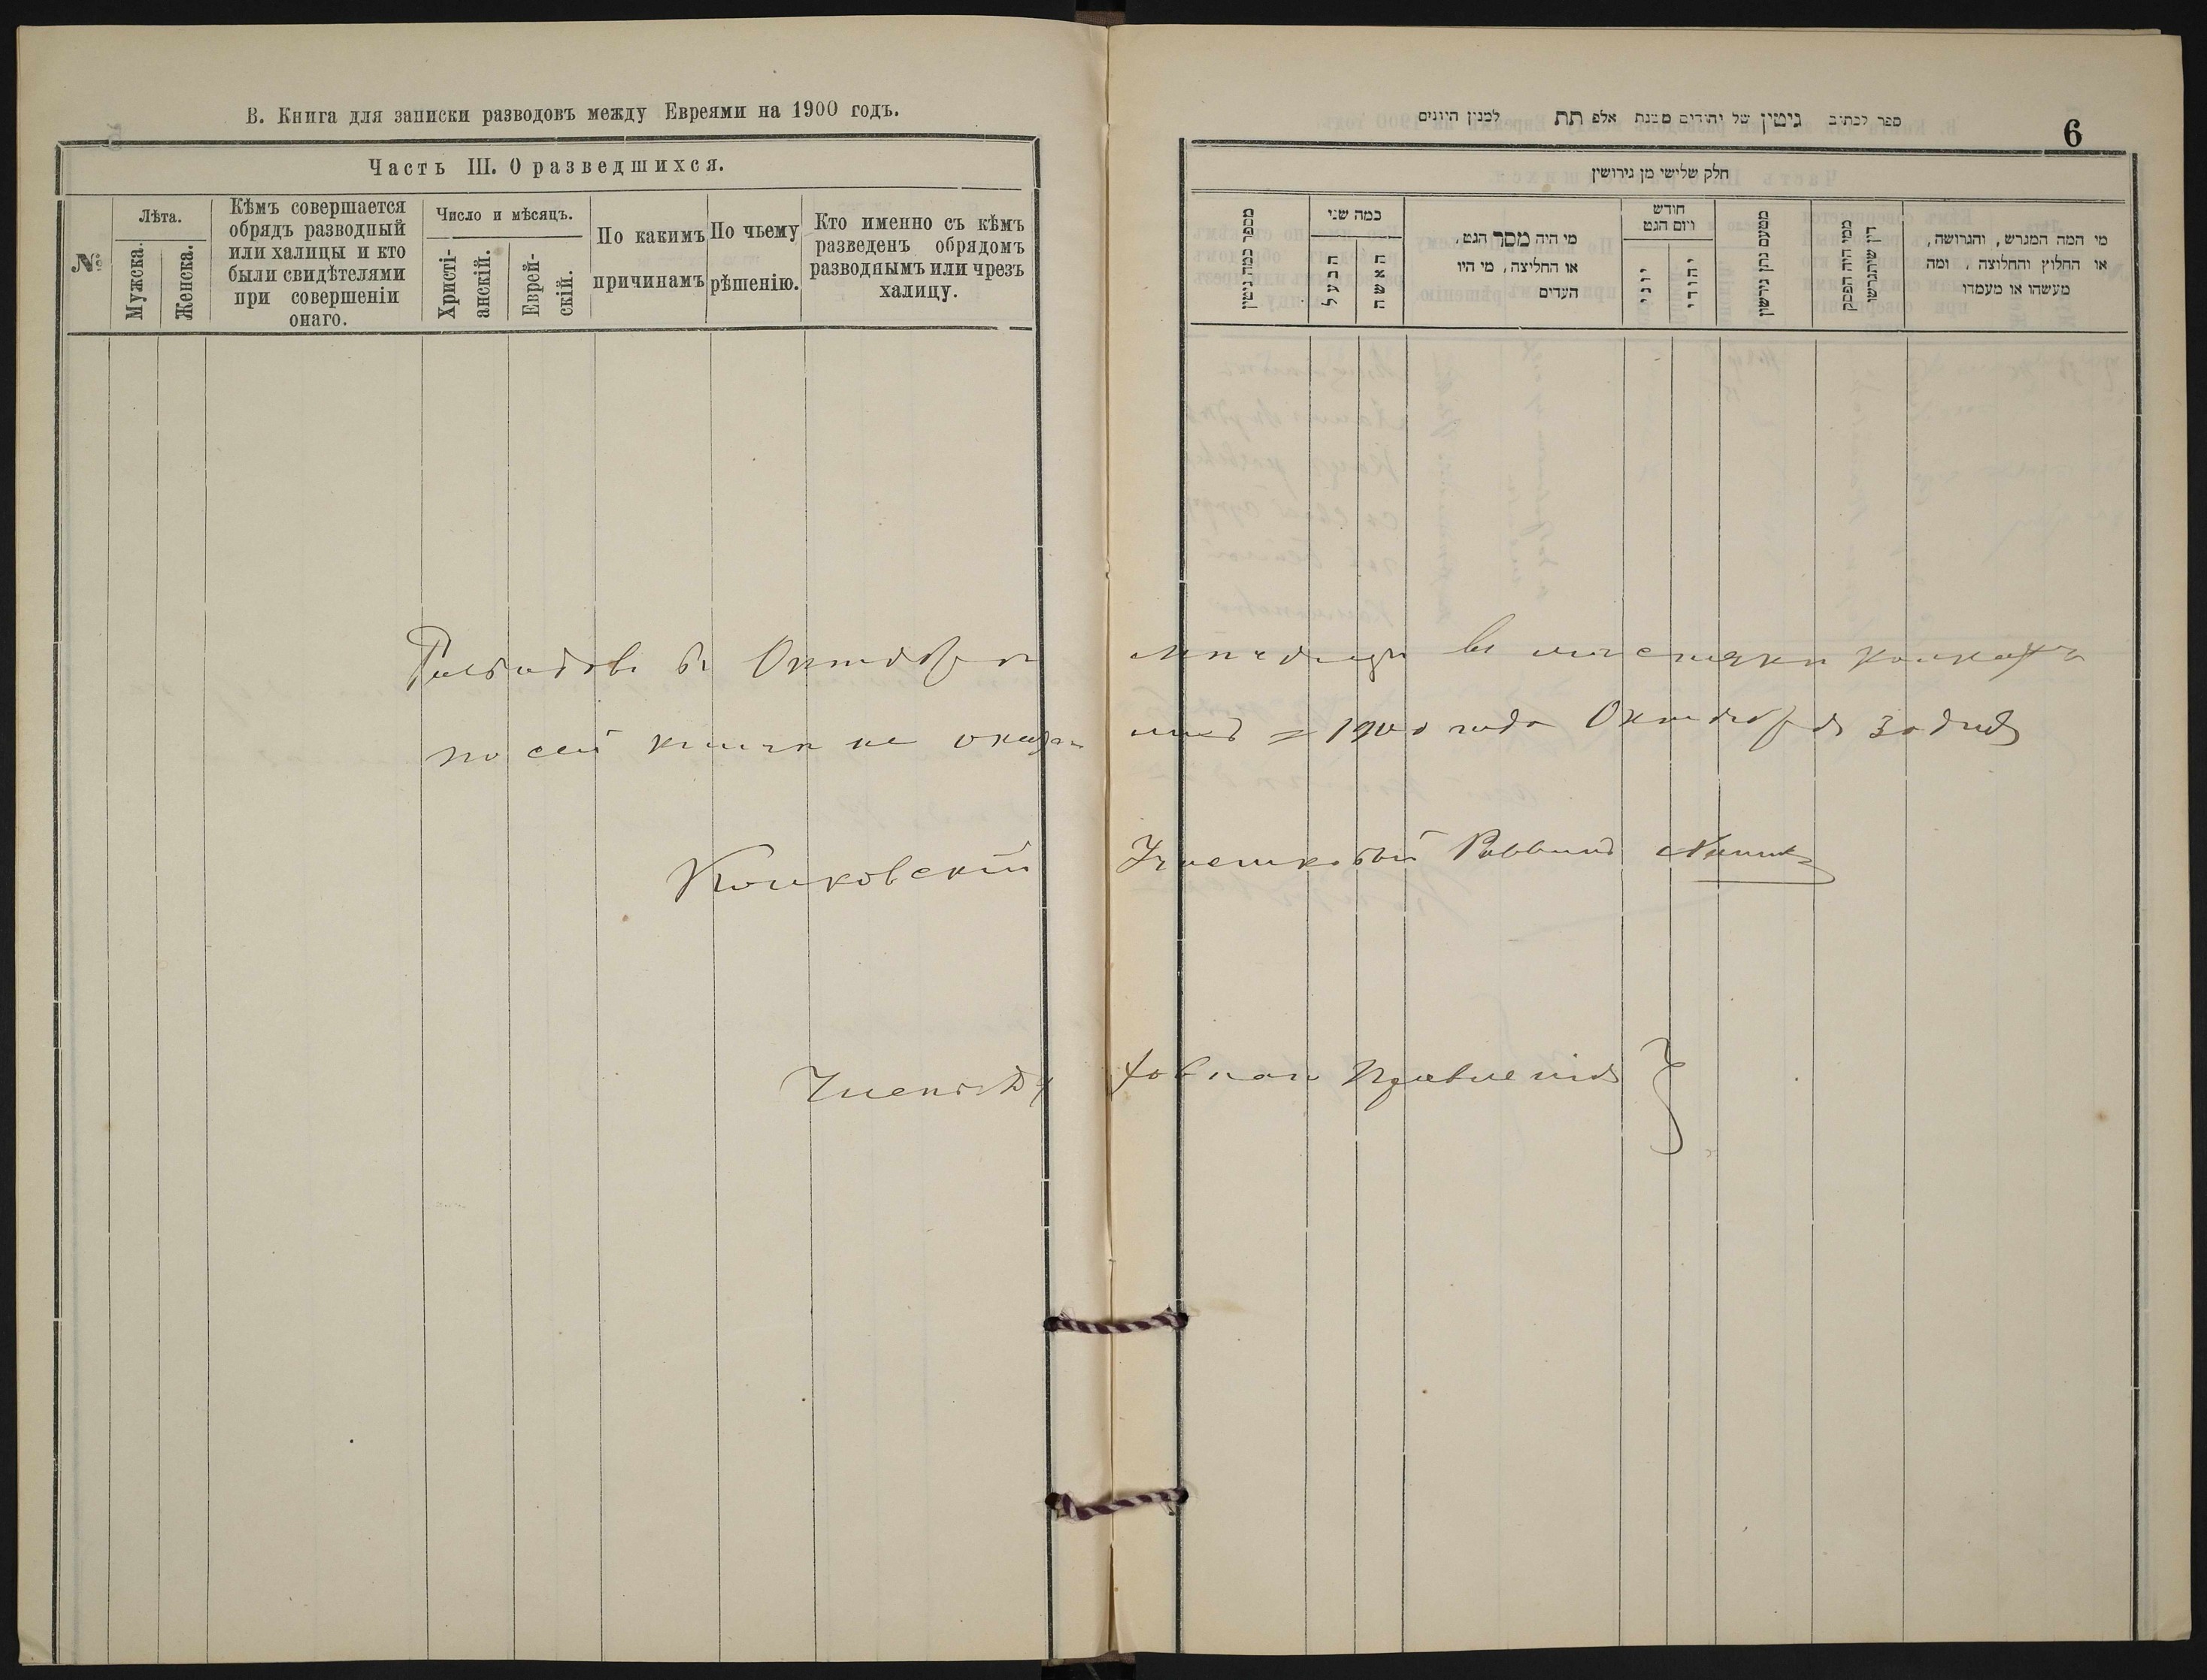 В. Книга для записки разводовъ между Евреями на 1900 годъ.
Часть III. О разведшихся.
№
Лѣта.
Мужска.
Женска.
Кѣмъ совершается
обрядъ разводный
или халицы и кто
были свидѣтелями
при совершеніи
онаго.
Число и мѣсяцъ.
Христі-
анскій.
Еврей-
скій.
По какимъ
причинамъ
По чьему
рѣшенію.
Кто именно съ кѣмъ
разведенъ обрядомъ
разводнымъ или чрезъ
халицу.
ספר לכתוב גיטין של יהודים משנת אלפ תת למנין היונים
6
חלק שלישי מן גירושין
מספר כמה גיטין
כמה שני
הבעל
האשה
מי היה מסר הגט,
או החליצה, מי היו
העדים
חודש
ויום הגט
יוני
יהודי
מטעם נתן גירושין
ממי היה הפסק
דין שיתגרשו
מי המה המגרש, והגרושה,
או החלוץ והחלוצה, ומה
מעשהו או מעמדו
въ Октябрѣ мѣсяцѣ въ мѣстечкѣ Колкахъ
по сей книгѣ не оказалось 1900 года Октября 30 дня
Колковскій Участковый Раввинъ
Члены Духовнаго Правленія }